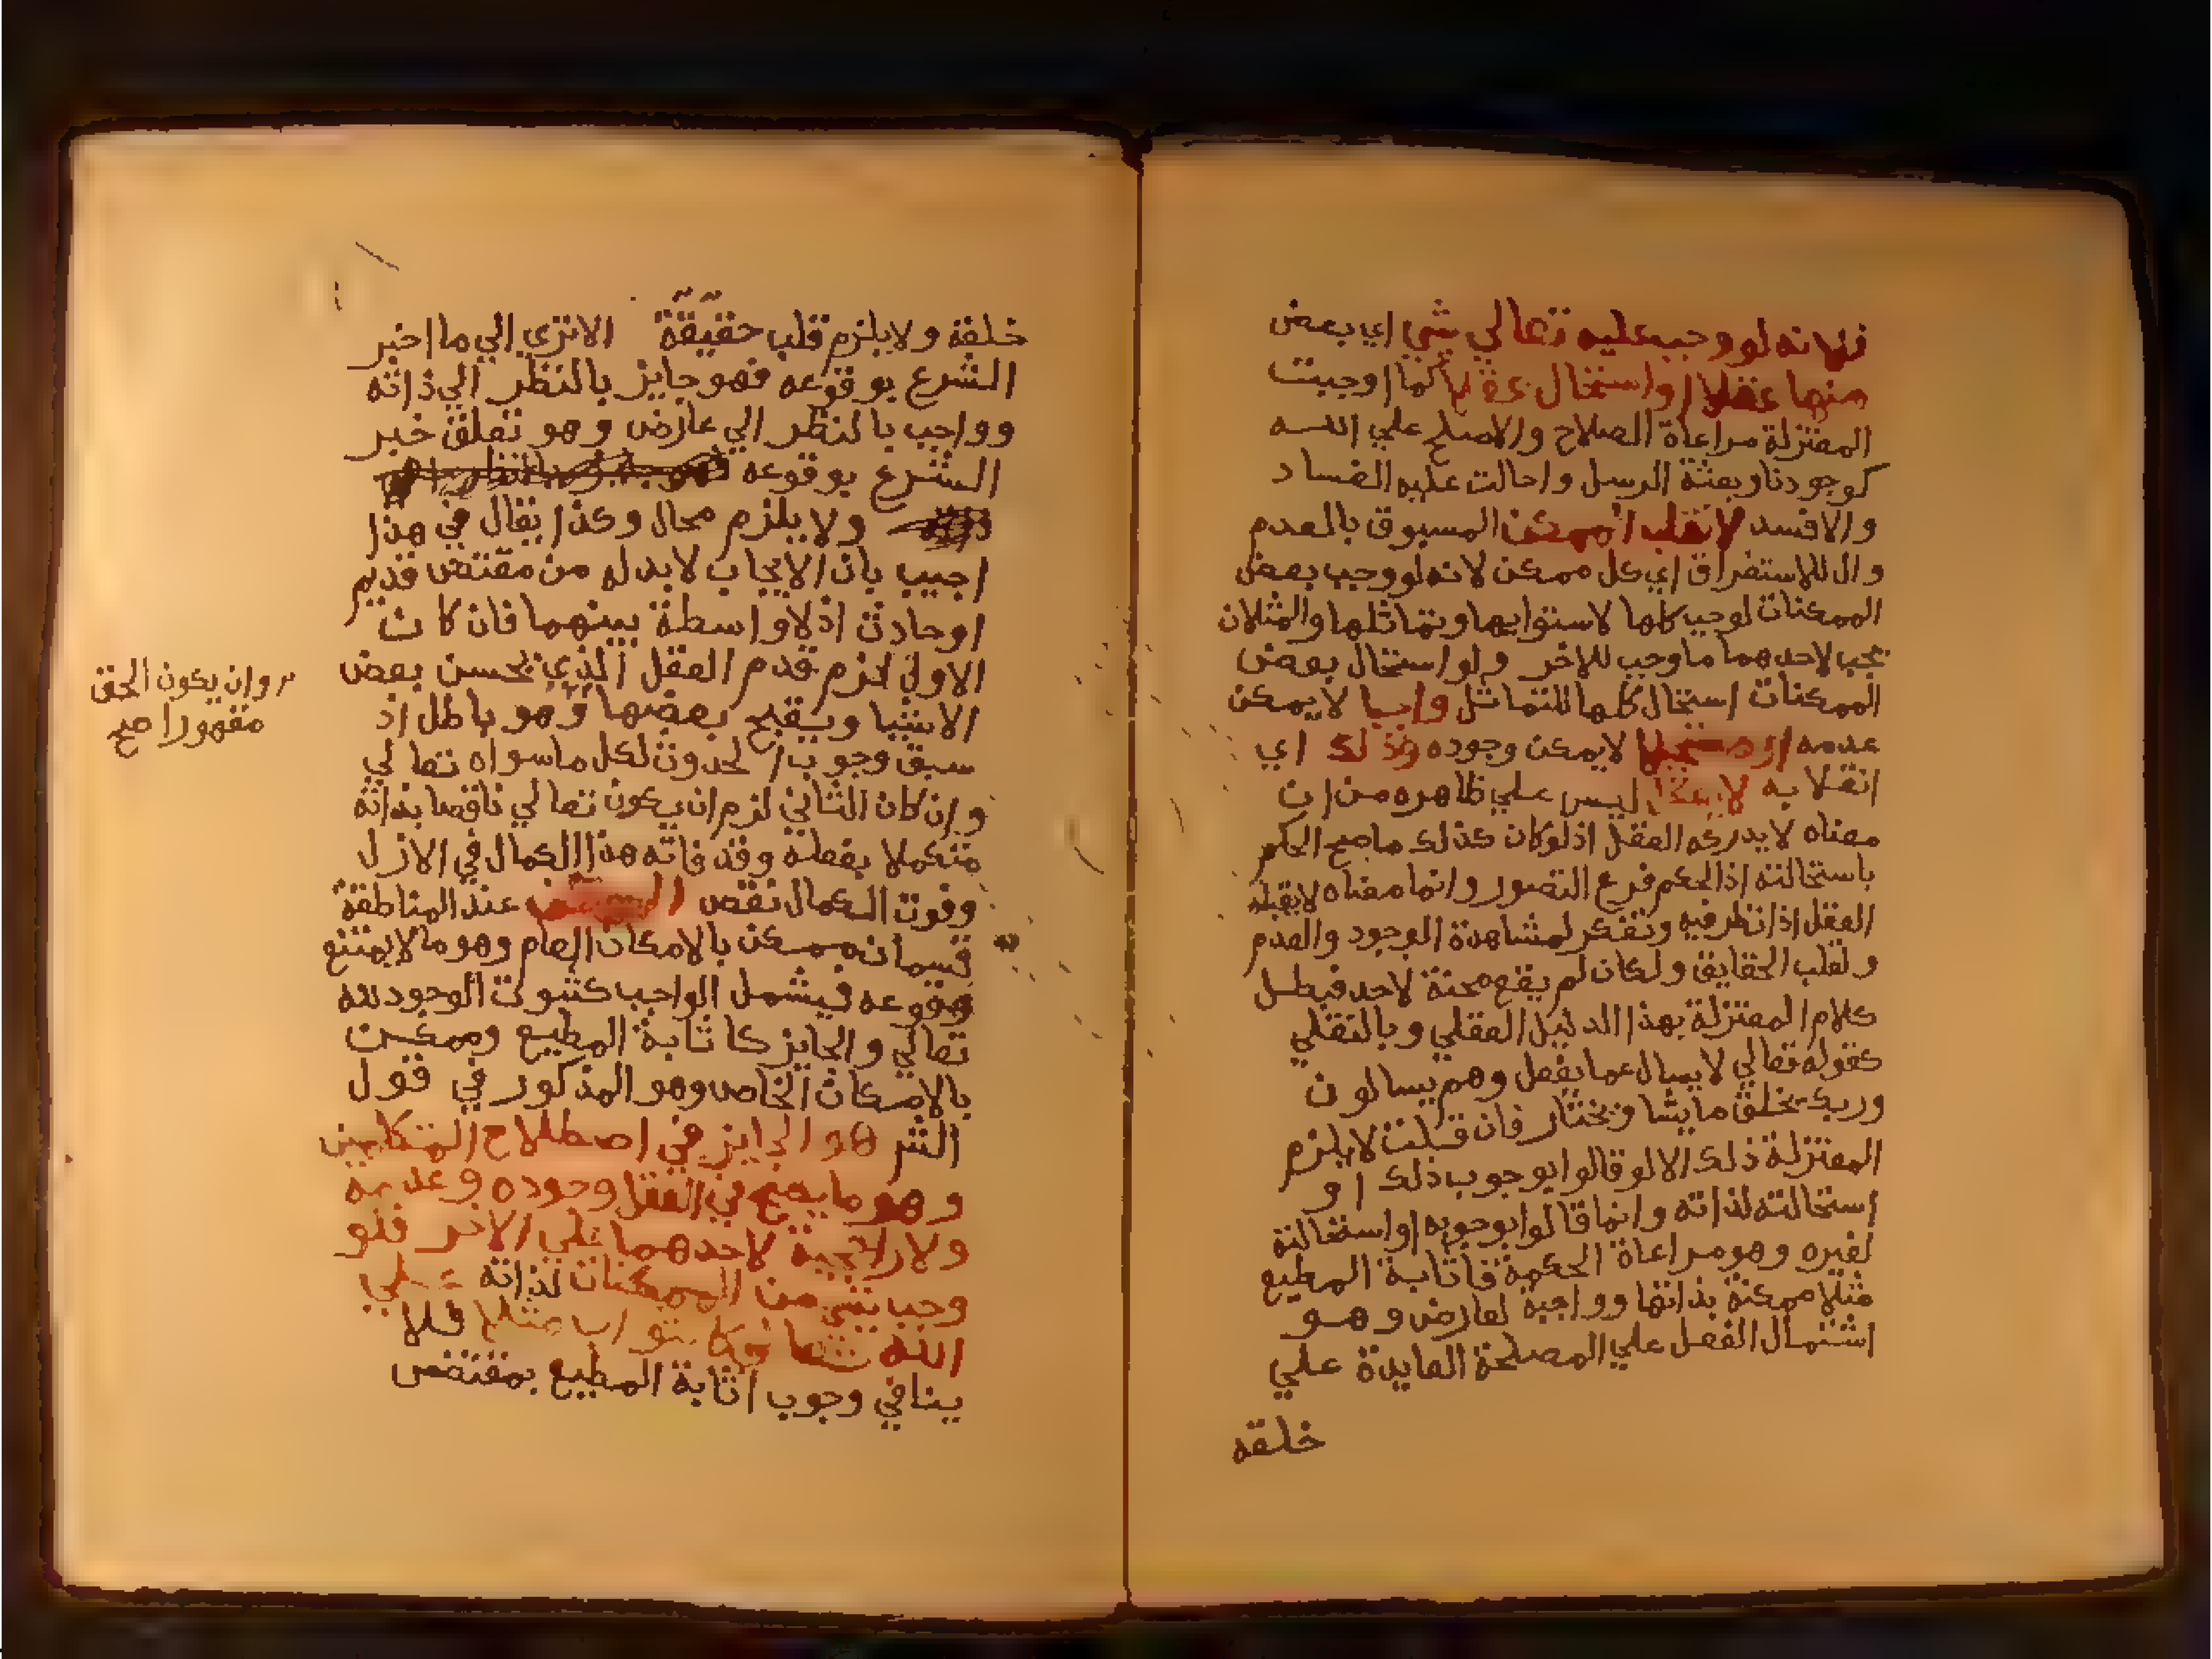 فلانه لو وجب عليه تعالي شي اي بعض
منها عقلا او استحال عقلا كما اوجبت
المعتزلة مراعاة الصلاح والاصلح علي الله
كوجودنا وبعثة الرسل واحالت عليه الفساد
والافسد لانقلب الممكن المسبوق بالعدم
وال للاستغراق اي كل ممكن لانه لو وجب بعض
الممكنات لوجب كلها لاستوايها وتماثلها والمثلان
يجب لاحدهما ما وجب للاخر ولو استحال بعض
الممكنات استحال كلها للتماثل واجبا لا يمكن
عدمه او مستحيلا لا يمكن وجوده وذلك اي
انقلابه لا يعقل ليس علي ظاهره من ان
معناه لا يدركه العقل اذ لو كان كذلك ما صح الحكم
باستحالته اذ الحكم فرع التصور وانما معناه لا يقبله
العقل اذا نظر فيه وتفكر لمشاهدة الوجود والعدم
ولقلب الحقايق ولكان لم يقع محنة لاحد فبطل
كلام المعتزلة بهذا الدليل العقلي وبالنقلي
كقوله تعالي لا يسال عما يفعل وهم يسالون
وربك يخلق ما يشا ويختار فان قلت لا يلزم
المعتزلة ذلك الا لو قالوا بوجوب ذلك او
استحالته لذاته وانما قالوا بوجوبه او استحالته
لغيره وهو مراعاة الحكمة فاثابة المطيع
مثلا ممكنة بذاتها وواجبة لعارض وهو
اشتمال الفعل علي المصلحة العايدة علي
خلقه
خلقة ولا يلزم قلب حقيقة الا تري الي ما اخبر
الشرع بوقوعه فهو جايز بالنظر الي ذاته
وواجب بالنظر الي عارض وهو تعلق خبر
الشرع بوقوعه
ولا يلزم محال وكذا يقال في هذا
اجيب بان الايجاب لابد له من مقتض قديم
او حادث اذ لا واسطة بينهما فان كان
الاول لزم قدم العقل الذي يحسن بعض
الاشيا ويقبح بعضها وهو باطل اذ
سبق وجوب الحدوث لكل ما سواه تعالي
وان كان الثاني لزم ان يكون تعالي ناقصا بذاته
متكملا بفعله وقد فاته هذا الكمال في الازل
وفوت الكمال نقص الممكن عند المناطقة
قسمان ممكن بالامكان العام وهو ما لا يمتنع
وقوعه فيشمل الواجب كثبوت الوجود لله
تعالي والجايز كاثابة المطيع وممكن
بالامكان الخاص وهو المذكور في قول
الش هو الجايز في اصطلاح المتكلمين
وهو ما يصح في العقل وجوده وعدمه
ولا راجحية لاحدهما علي الاخر فلو
وجب شي من الممكنات لذاته علي
الله تعالي كالثواب مثلا فلا
ينافي وجوب اثابة المطيع بمقتضي
وان يكون الحق
مقهورا صح